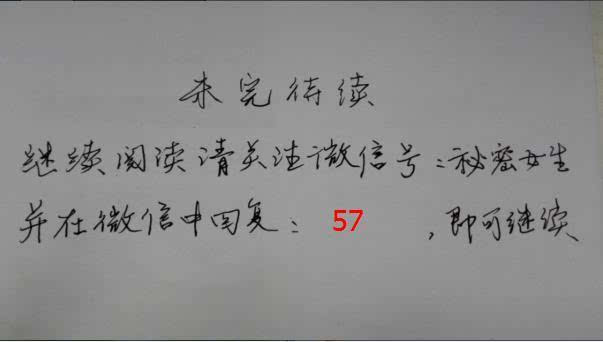 未完待续
继续阅读请关注微信号：秘密女生
并在微信中回复：57，即可继续